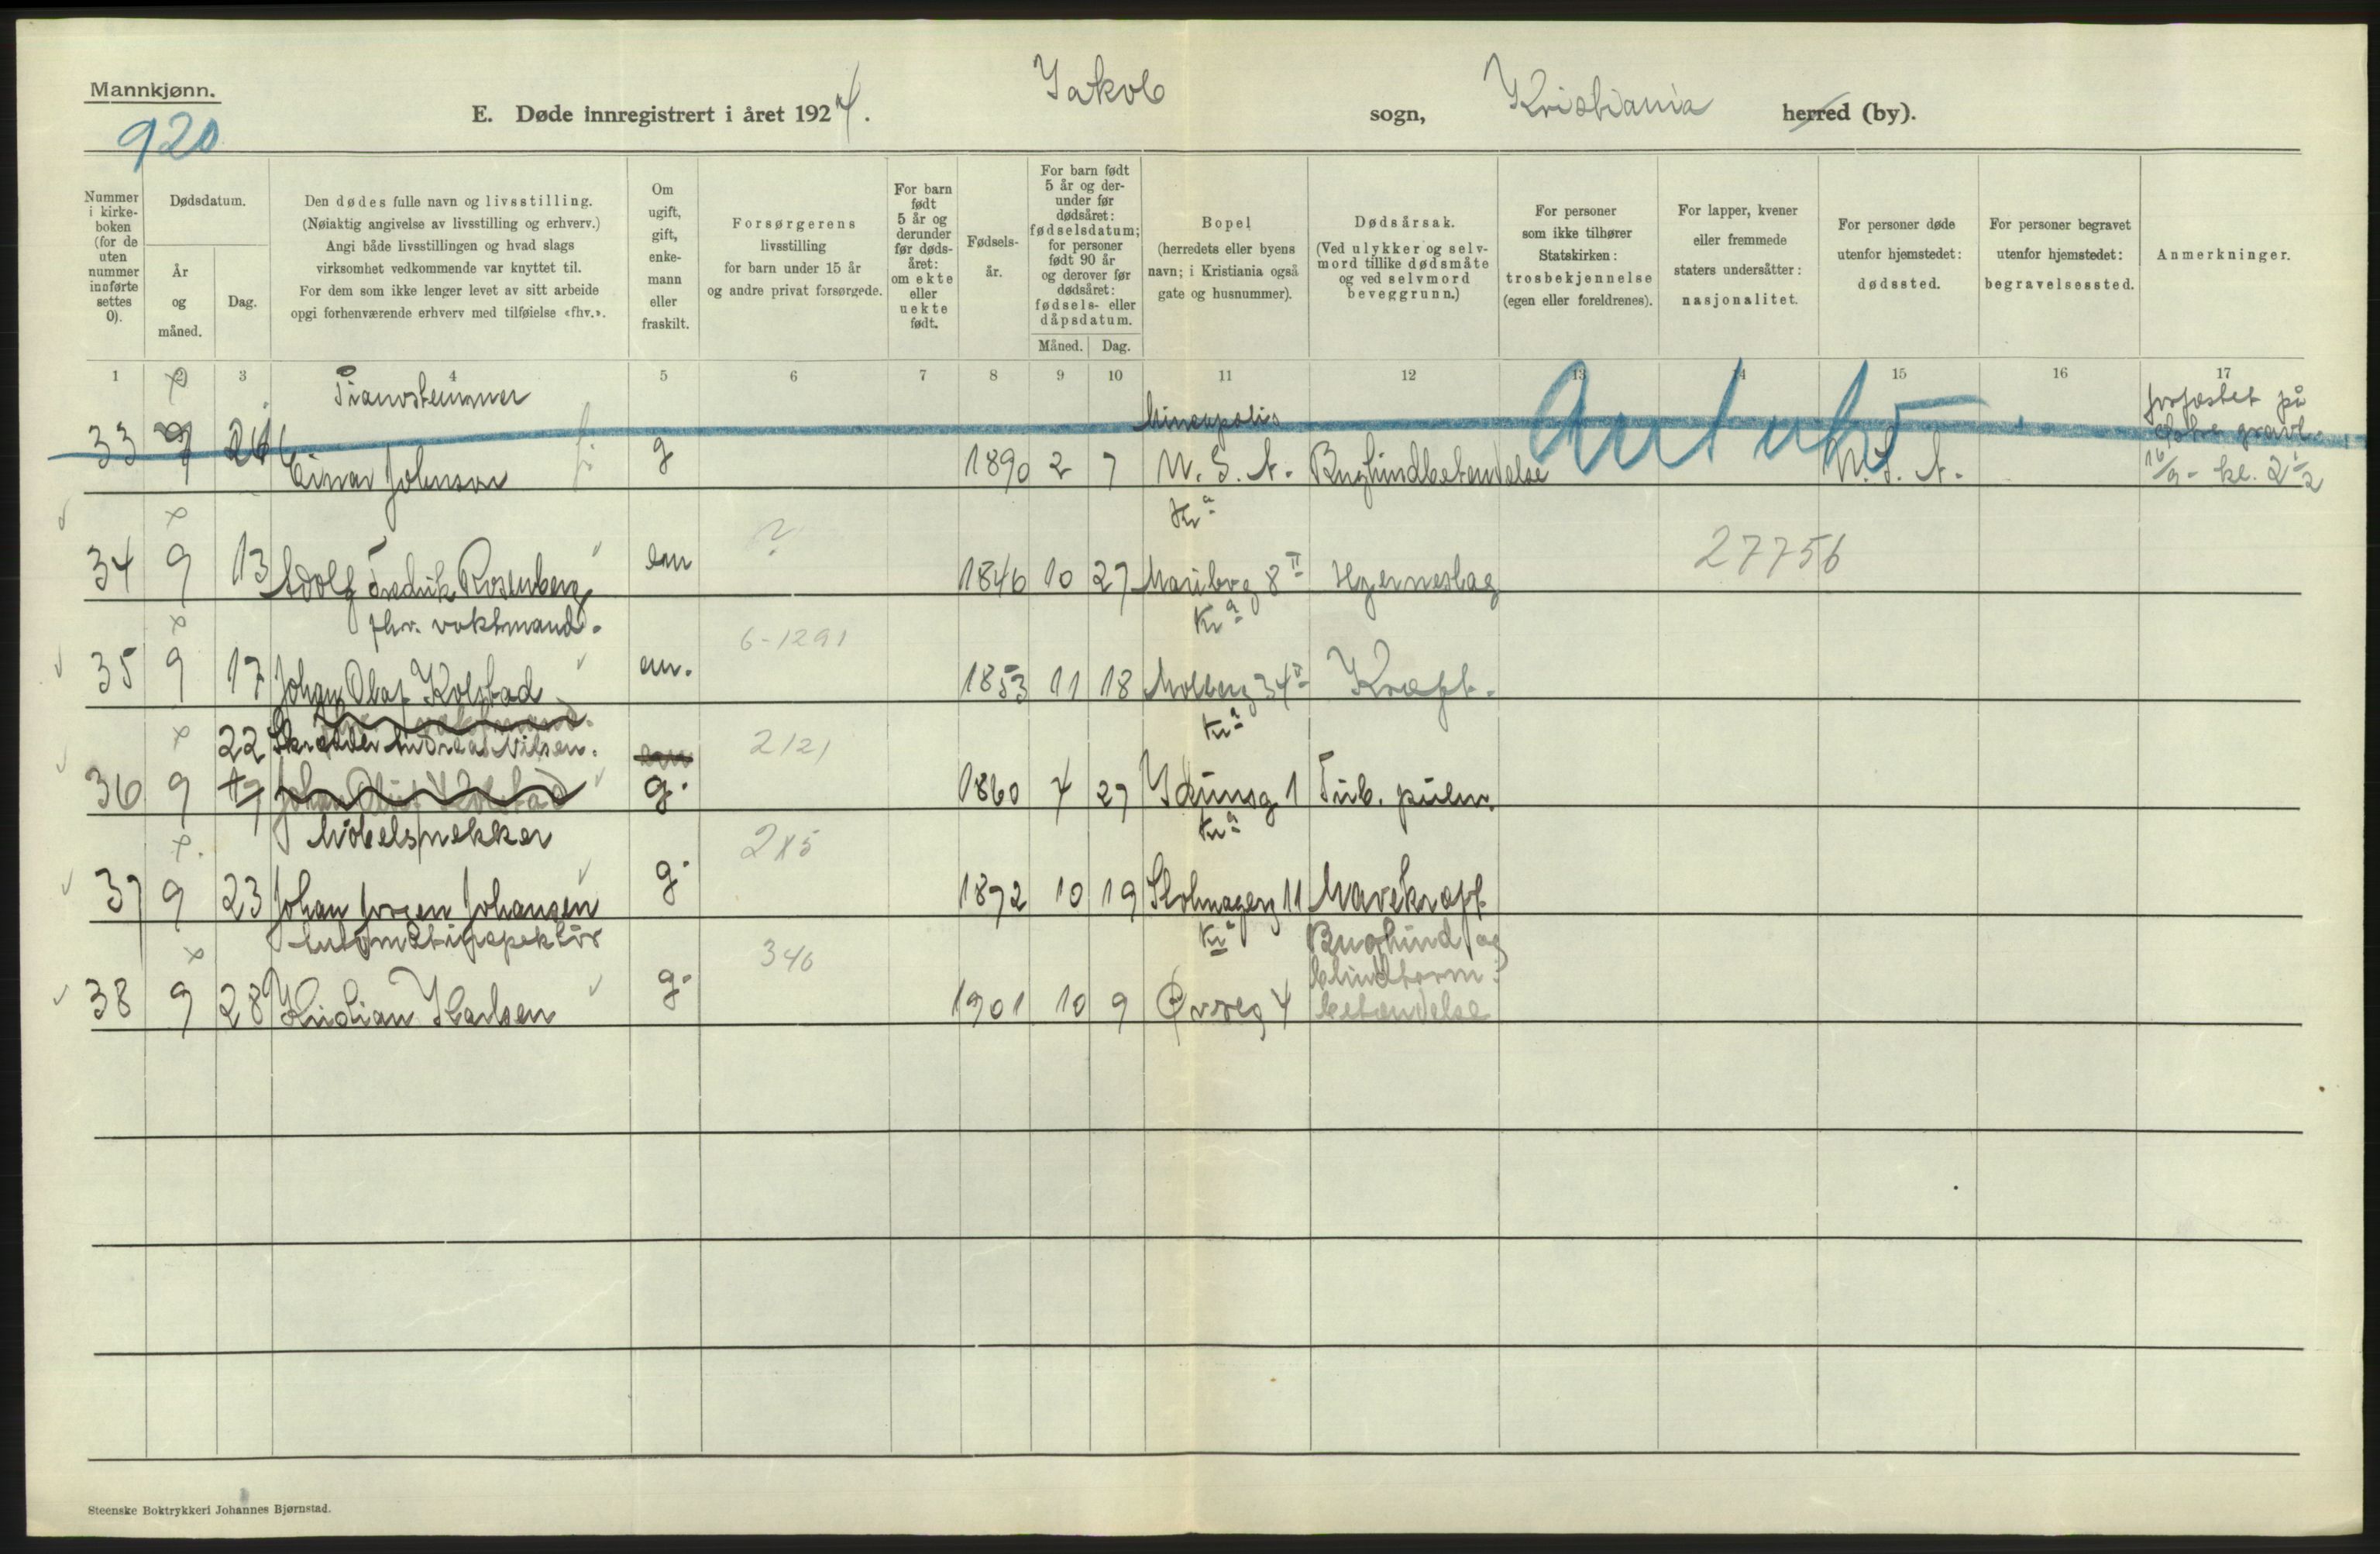 Mannkjønn.
920
E. Døde innregistrert i året 1924.
Jakob
sogn,
Kristiania
herred (by).
Nummer i kirke- boken (for de uten nummer innførte settes 0).
Dødsdatum.
År og måned.
Dag.
Den dødes fulle navn og livsstilling.
(Nøiaktig angivelse av livsstilling og erhverv.)
Angi både livsstillingen og hvad slags
virksomhet vedkommende var knyttet til.
For dem som ikke lenger levet av sitt arbeide
opgi forhenværende erhverv med tilføielse «fhv.».
Om ugift, gift, enke- mann eller fraskilt.
Forsørgerens
livsstilling
for barn under 15 år
og andre privat forsørgede.
For barn født 5 år og derunder før døds- året: om ekte eller uekte født.
Fødsels- år.
For barn født 5 år og der- under før dødsåret: fødselsdatum; for personer født 90 år og derover før dødsåret: fødsels- eller dåpsdatum.
Måned.
Dag.
Bopel
(herredets eller byens
navn; i Kristiania også
gate og husnummer).
Dødsårsak.
(Ved ulykker og selv-
mord tillike dødsmåte
og ved selvmord
beveggrunn.)
For personer
som ikke tilhører
Statskirken:
trosbekjennelse
(egen eller foreldrenes).
For lapper, kvener
eller fremmede
staters undersåtter:
nasjonalitet.
For personer døde
utenfor hjemstedet:
dødssted.
For personer begravet
utenfor hjemstedet:
begravelsessted.
Anmerkninger.
1 2 3 4 5 6 7 8 9 10 11 12 13 14 15 16 17
Pianostemmer
Mineapolis
jordfestet på
Østre gravl.
33 Einar Johnson g 1890 2 7 U.S.A. Bughindbetendelse U.S.A. 16/9 - kl. 2 1/2
Kra
34 9 13 Adolf Fredrik Rosenberg em ? 1846 10 27 Maribog 8 II Hjerneslag 27756
fhv. vaktmand.
Kra
35 9 17 Johan Olaf Kolstad em. 6-1291 1853 11 18 Møllerg 34 II Kræft.
Kra
22 Skrædder Andreas Nilsen. 2121
36 9 g. 1860 4 27 Idunsg 1 Tub. pulm.
Møbelsnekker
Kra
37 9 23 Johan Jørgen Johansen g. 285 1872 10 19 Stolmagerg 11 Mavekræft
Automatinspektør
Kra
Bughind og
blindtarm
38 9 28 Kristian Karlsen g. 346 1901 10 9 Øvreg 4 betendelse
Steenske Boktrykkeri Johannes Bjørnstad.